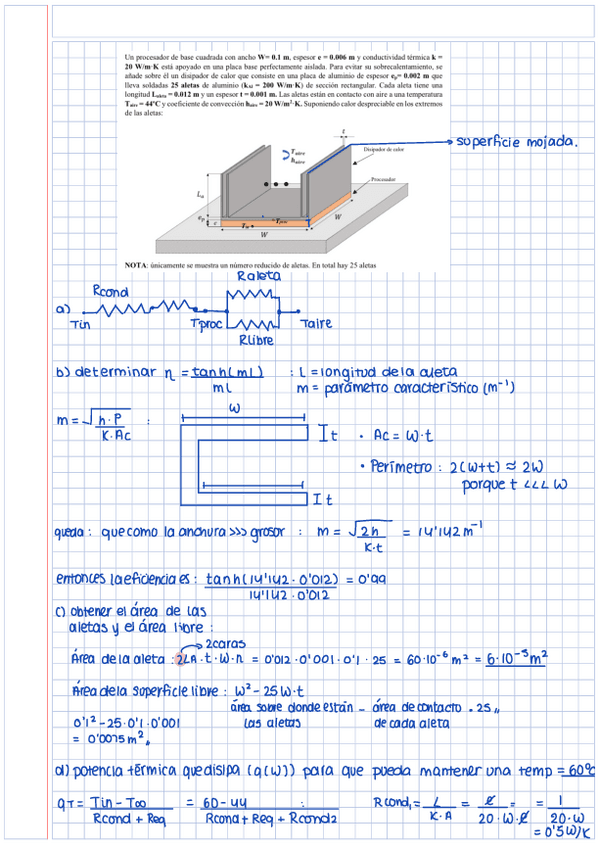 Un procesador de base cuadrada con ancho W= 0.1 m, espesor e = 0.006 m y conductividad térmica k =
20 W/m·K está apoyado en una placa base perfectamente aislada. Para evitar su sobrecalentamiento, se
añade sobre él un disipador de calor que consiste en una placa de aluminio de espesor eₚ= 0.002 m que
lleva soldadas 25 aletas de aluminio (kAl = 200 W/m·K) de sección rectangular. Cada aleta tiene una
longitud Laleta = 0.012 m y un espesor t = 0.001 m. Las aletas están en contacto con aire a una temperatura
Taire = 44ºC y coeficiente de convección haire = 20 W/m²·K. Suponiendo calor despreciable en los extremos
de las aletas:
t
superficie mojada.
Taire
haire
Disipador de calor
Procesador
La
eₚ
e
Tin
Tproc
W
W
NOTA: únicamente se muestra un número reducido de aletas. En total hay 25 aletas
Raleta
Rcond
a)
Tin
Tproc
Taire
Rlibre
b) determinar η = tanh(mL) / mL : L = longitud de la aleta
m = parámetro característico (m⁻¹)
m = √(h·P / K·Ac) :
W
t
• Ac = W·t
• Perímetro : 2(W+t) ≈ 2W
porque t <<< W
t
queda : que como la anchura >>> grosor : m = √(2h / K·t) = 14'142 m⁻¹
entonces la eficiencia es : tanh(14'142 · 0'012) / 14'142 · 0'012 = 0'99
c) obtener el área de las
aletas y el área libre :
2 caras
Área de la aleta : 2LA · t · W · n = 0'012 · 0'001 · 0'1 · 25 = 60·10⁻⁶ m² = 6·10⁻⁵ m²
Área de la superficie libre : W² - 25W·t
área sobre donde están - área de contacto · 25 "
0'1² - 25·0'1·0'001
las aletas
de cada aleta
= 0'0075 m² "
d) potencia térmica que disipa (q(W)) para que pueda mantener una temp = 60ºC
qT = Tin - T∞ / Rcond + Req = 60 - 44 / Rcond + Req + Rcond2
Rcond₁ = L / K·A = e / 20·W·e = 1 / 20·W
= 0'5 W/K